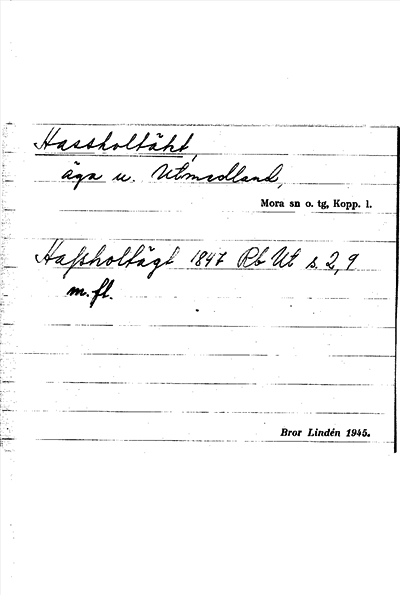 Hassholtäkt,
äga u. Utmedland,
Mora sn o. tg, Kopp. l.
Haſsholtägt 1847 Rb Ut s. 2, 9
m. fl.
Bror Lindén 1945.